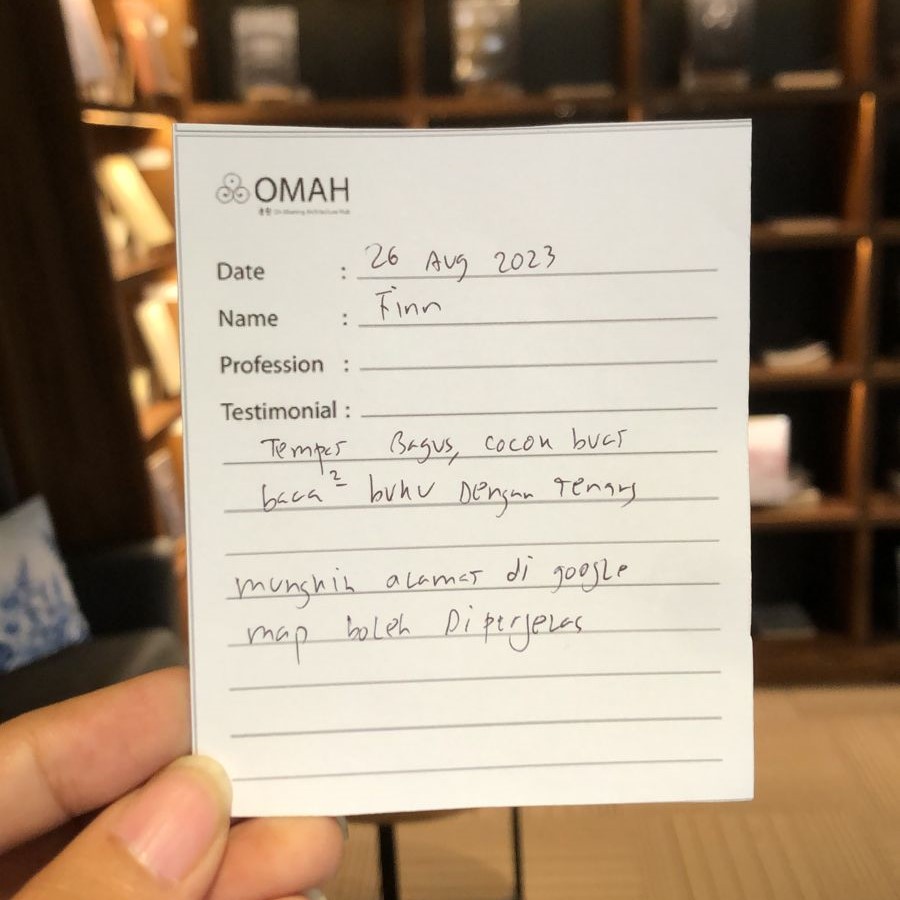 OMAH
Date : 26 Aug 2023
Name : Finn
Profession :
Testimonial :
Tempat Bagus, cocok buat
baca² buku Dengan Tenang
mungkin alamat di google
map boleh Diperjelas